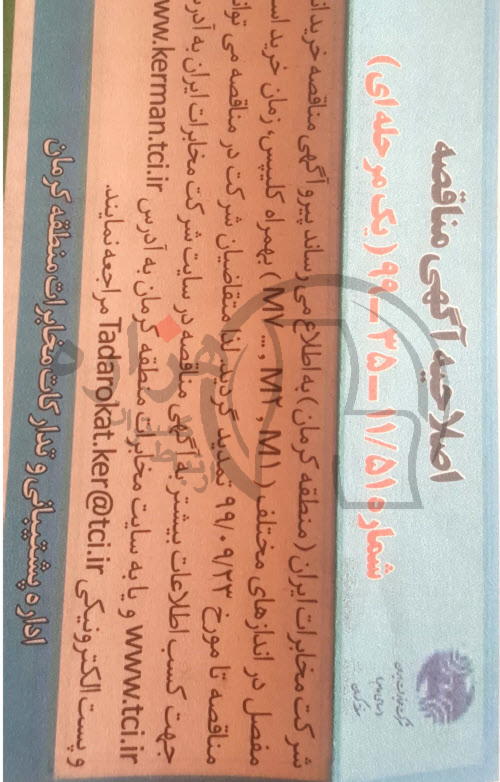 اصلاحیه آگهی مناقصه
شماره ۱۱/۵۱ – ۳۵ – ۹۹ (یک مرحله ای)
شرکت مخابرات ایران
(سهامی عام)
منطقه کرمان
شرکت مخابرات ایران (منطقه کرمان) به اطلاع می رساند پیرو آگهی مناقصه خرید
مفصل در اندازهای مختلف (M۱ , M۲ , ... M۷) بهمراه کلیپس، زمان خرید
مناقصه تا مورخ ۹۹/۰۹/۲۳ تمدید گردید. لذا متقاضیان شرکت در مناقصه می
جهت کسب اطلاعات بیشتر به آگهی مناقصه در سایت شرکت مخابرات ایران به
www.tci.ir و یا به سایت مخابرات منطقه کرمان به آدرس ww.kerman.tci.ir
و پست الکترونیکی Tadarokat.ker@tci.ir مراجعه نمایند.
اداره پشتیبانی و تدارکات مخابرات منطقه کرمان